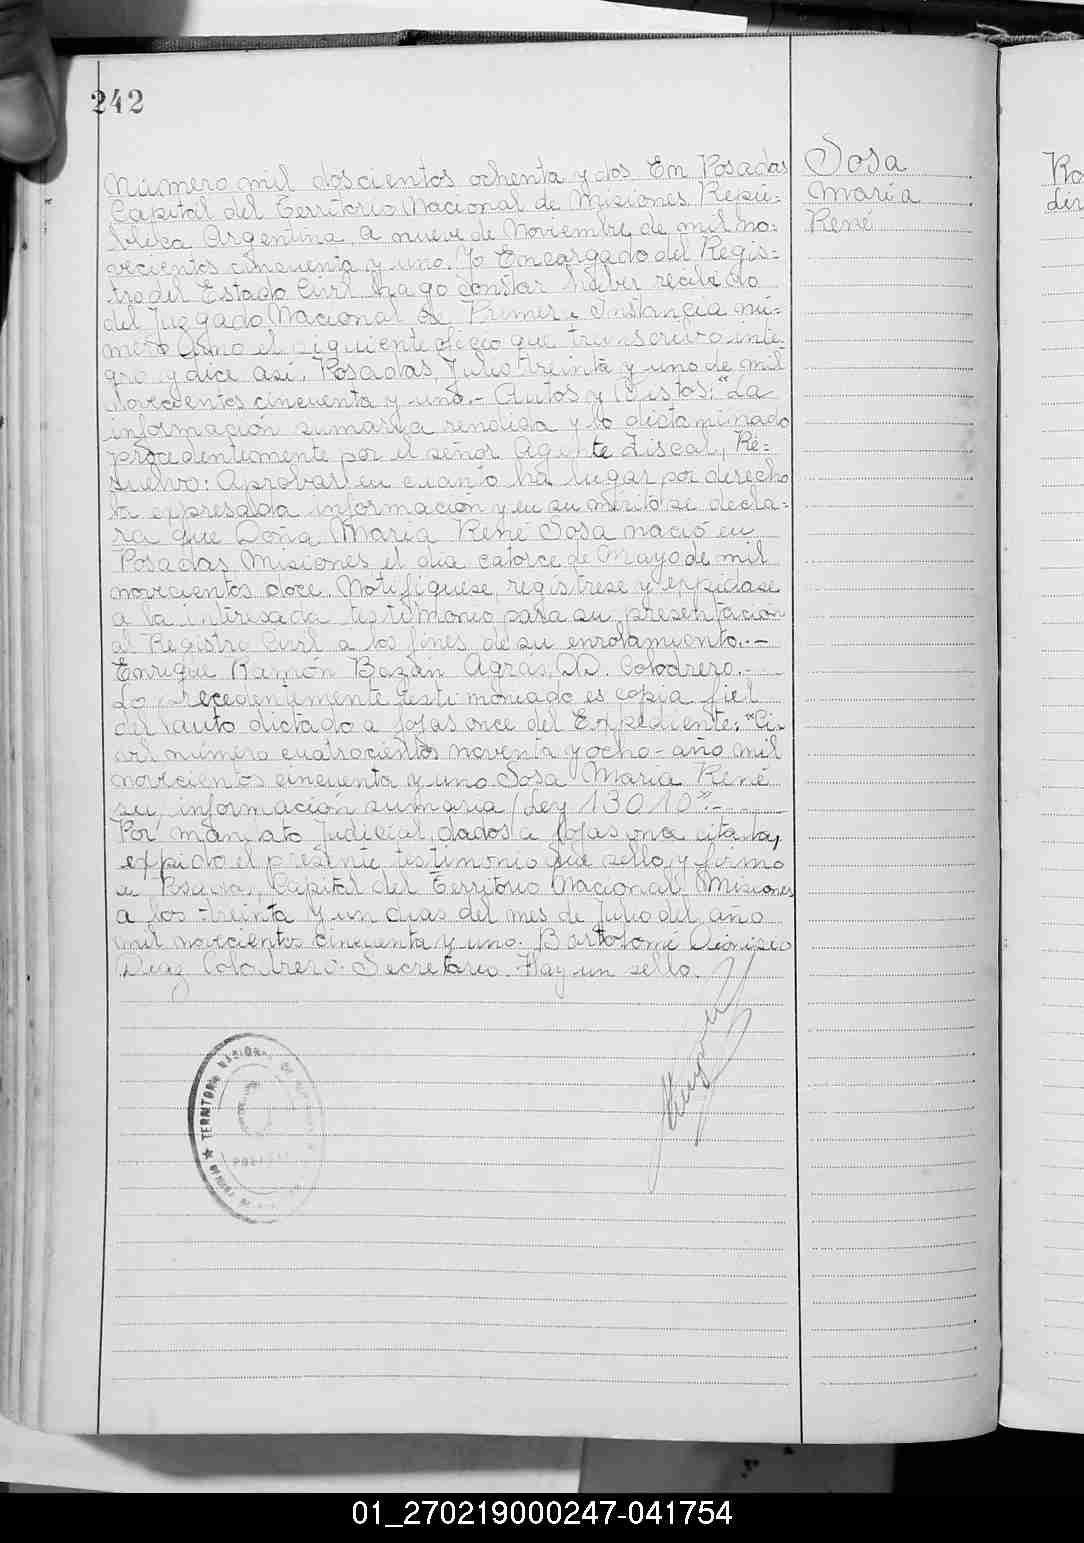 242
Número mil doscientos ochenta y dos En Posadas
Capital del Territorio Nacional de Misiones Repú-
blica Argentina, a nueve de Noviembre de mil no-
vecientos cincuenta y uno. Yo Encargado del Regis-
tro del Estado Civil hago constar haber recibido
del Juzgado Nacional de Primera Instancia nú-
mero uno el siguiente oficio que transcribo inte-
gro y dice así. Posadas, Julio treinta y uno de mil
novecientos cincuenta y uno.- Autos y Vistos: "La
información sumaria rendida y lo dictaminado
precedentemente por el señor Agente Fiscal, Re-
suelvo: Aprobar en cuanto há lugar por derecho
la expresada información y en su mérito se decla-
ra que Doña María René Sosa nació en
Posadas Misiones el día catorce de Mayo de mil
novecientos doce. Notifíquese, regístrese y expídase
a la interesada testimonio para su presentación
al Registro Civil a los fines de su enrolamiento.-
Enrique Ramón Bazán Agras, DD. Colodrero.-
Lo precedentemente testimoniado es copia fiel
del auto dictado a fojas once del Expediente: "Ci-
vil número cuatrocientos noventa y ocho - año mil
novecientos cincuenta y uno Sosa María René
su información sumaria (Ley 13010".-
Por mandato judicial, dados a fojas once citada,
expido el presente testimonio que sello y firmo
en Posadas, Capital del Territorio Nacional Misiones
a los treinta y un días del mes de Julio del año
mil novecientos cincuenta y uno. Bartolomé Dionisio
Díaz Colodrero. Secretario. Hay un sello.
Sosa
María
René
TERRITORIO NACIONAL DE
01_270219000247-041754